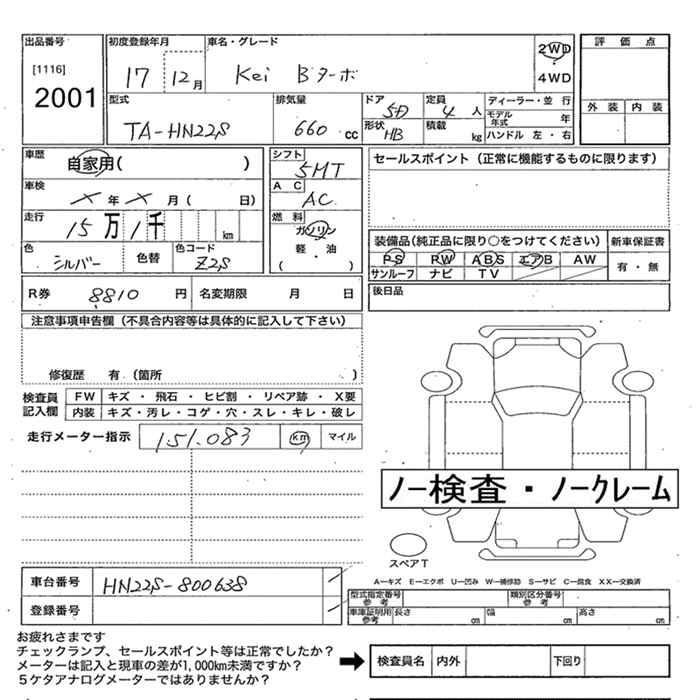 出品番号 初度登録年月 車名・グレード 評価点
[1116] 2001
17 12月 Kei Bターボ 2WD 4WD
外装 内装
型式 排気量 ドア 定員 ディーラー・並行
TA-HN22S 660cc 5D 4人 モデル年式 年
形状 HB 積載 kg ハンドル 左・右
車歴 自家用( ) シフト 5MT セールスポイント（正常に機能するものに限ります）
車検 X年X月( 日) AC AC
走行 15万1千 km 燃料 ガソリン
軽・油
( )
色 シルバー 色替 色コード Z2S
装備品(純正品に限り○をつけてください) 新車保証書
PS PW ABS エアB AW 有・無
サンルーフ ナビ TV
R券 8810円 名変期限 月 日 後日品
注意事項申告欄（不具合内容等は具体的に記入して下さい）
修復歴 有(箇所 )
検査員記入欄 FW キズ・飛石・ヒビ割・リペア跡・X要
内装 キズ・汚レ・コゲ・穴・スレ・キレ・破レ
走行メーター指示 151.083 km マイル
ノー検査・ノークレーム
スペアT
A―キズ E―エクボ U―凹み W―補修跡 S―サビ C―腐食 XX―交換済
車台番号 HN22S-800638
登録番号
型式指定番号参考 類別区分番号参考
車庫証明用参考 長さ cm 幅 cm 高さ cm
お疲れさまです
チェックランプ、セールスポイント等は正常でしたか?
メーターは記入と現車の差が1,000km未満ですか?
5ケタアナログメーターではありませんか?
検査員名 内外 下回り